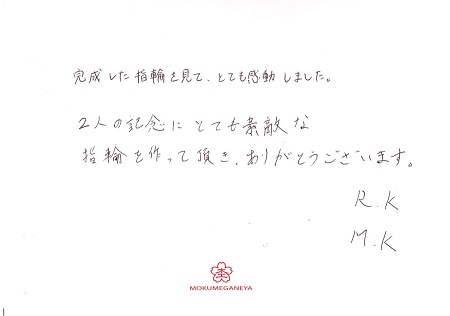 完成した指輪を見て、とても感動しました。
2人の記念にとても素敵な
指輪を作って頂き、ありがとうございます。
R.K
M.K
MOKUMEGANEYA